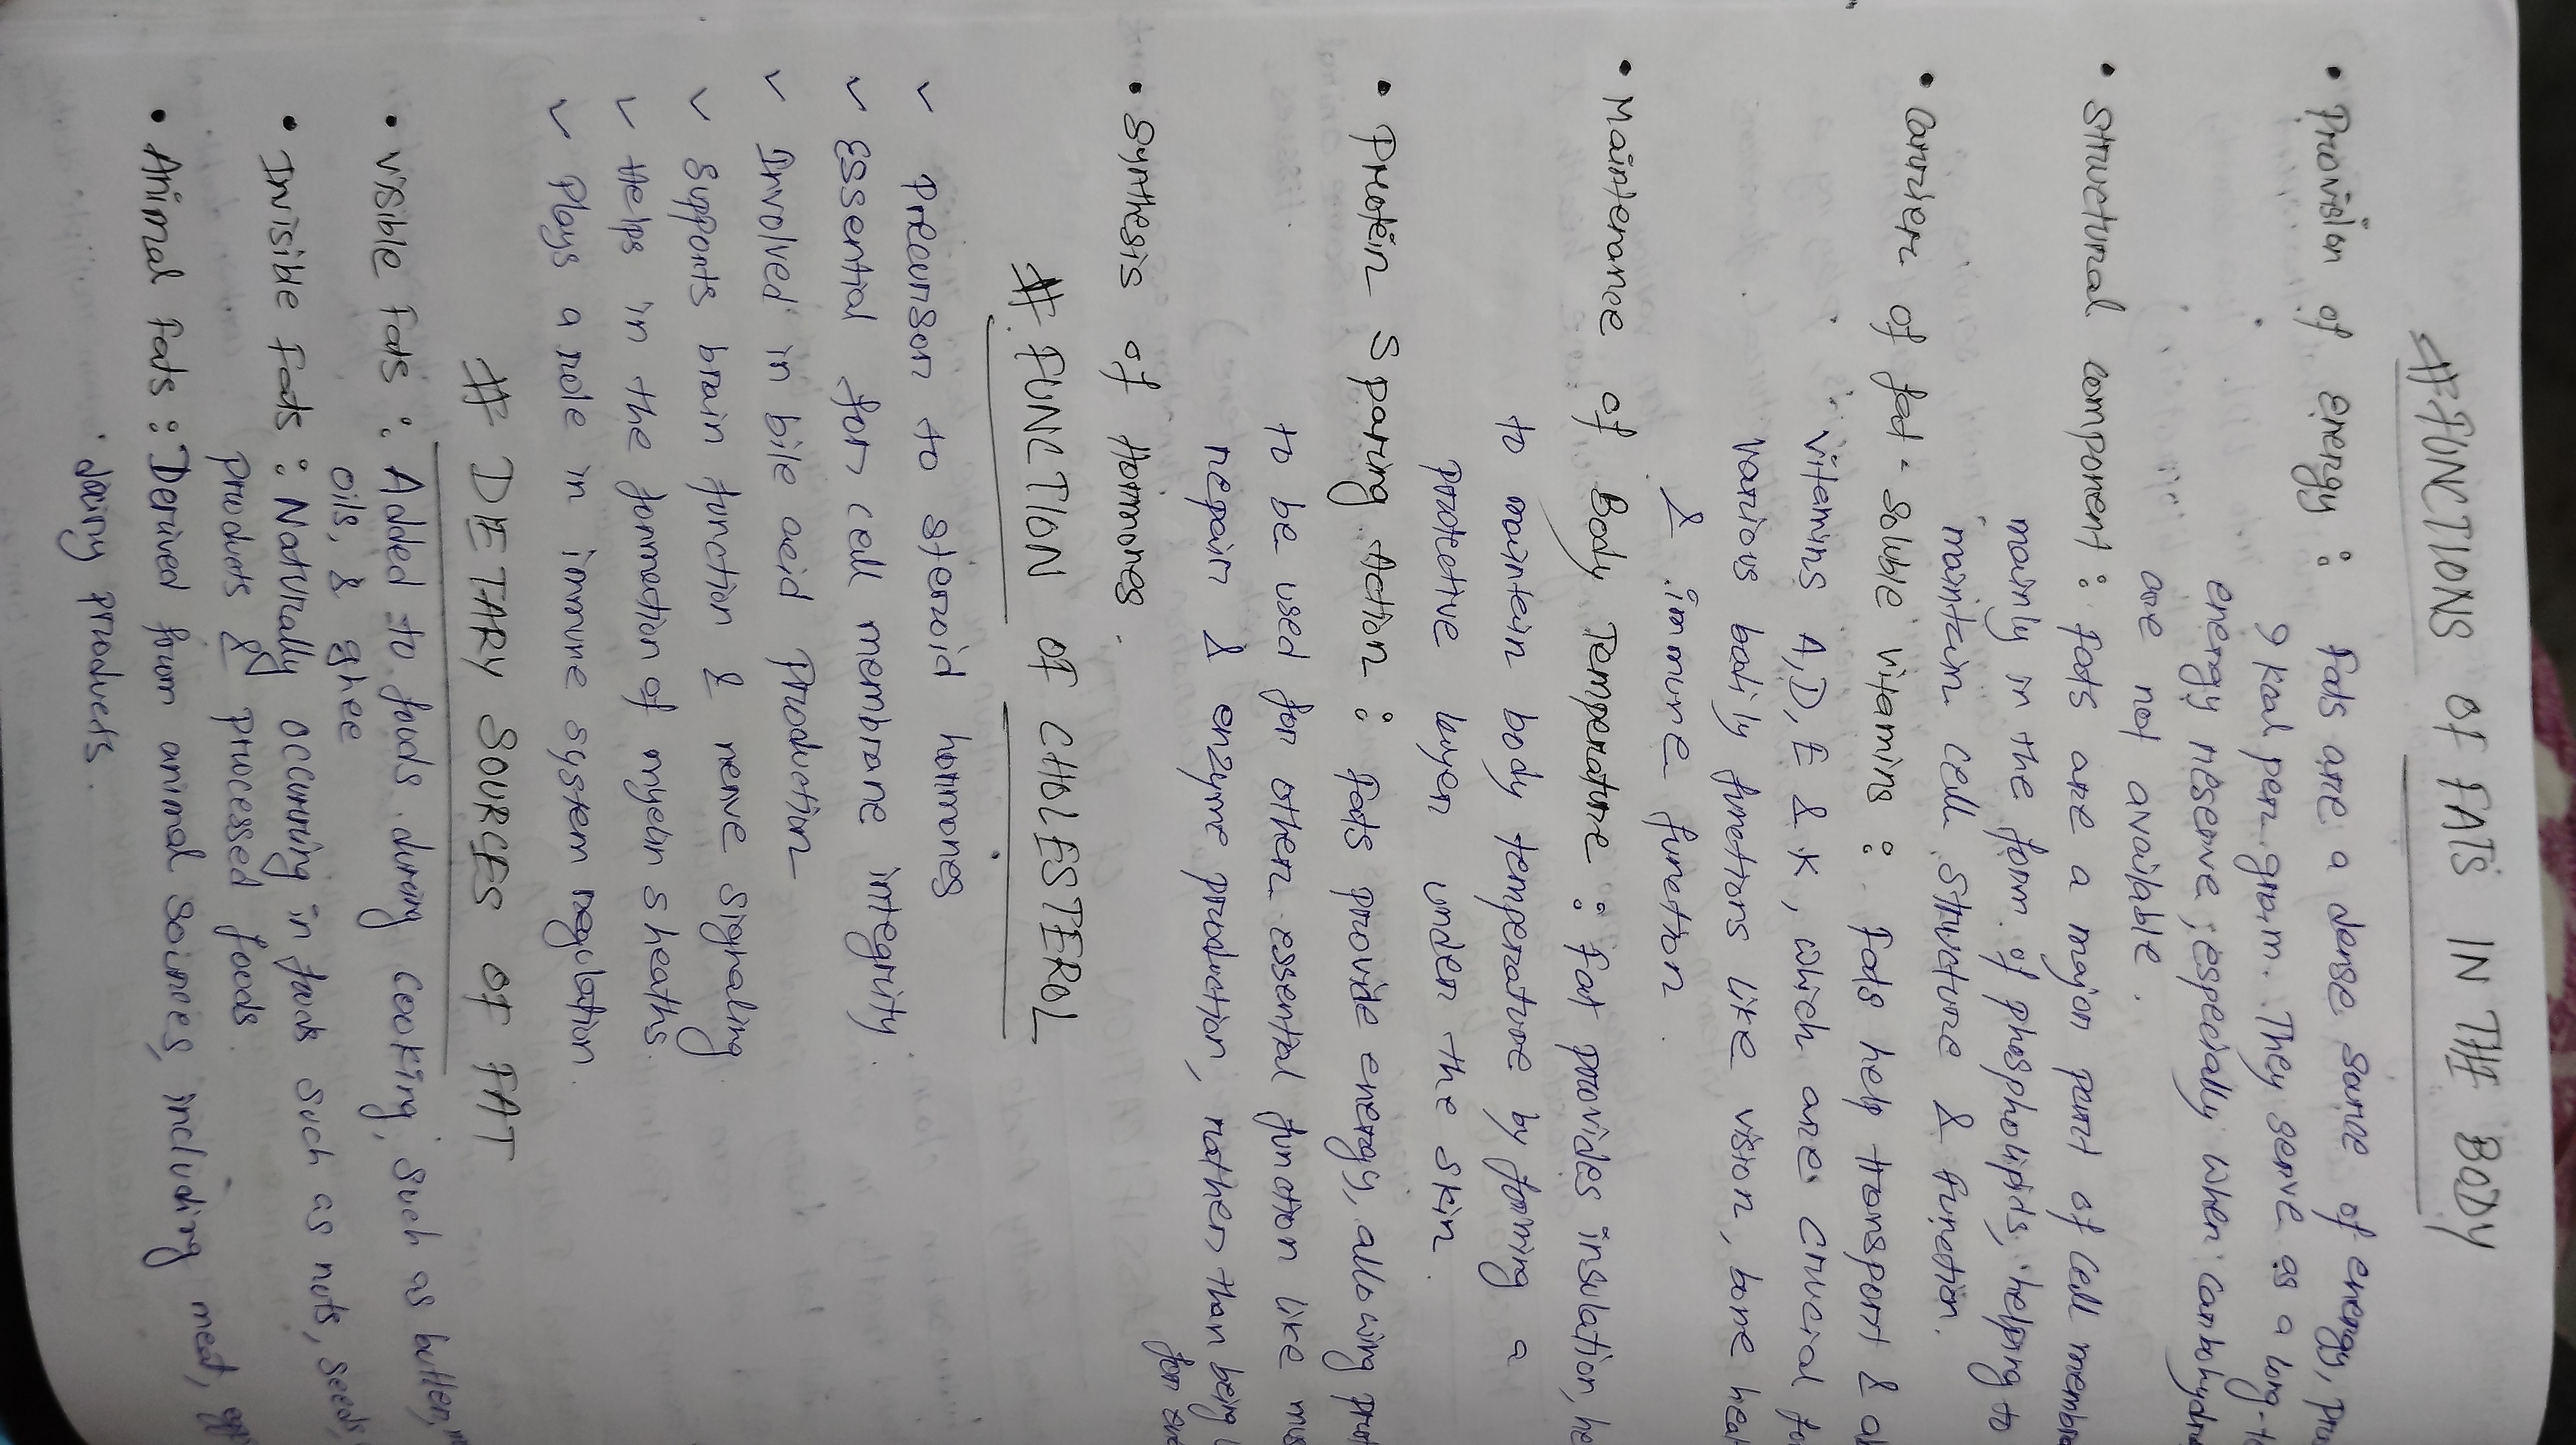 # FUNCTIONS OF FATS IN THE BODY
• Provision of energy : Fats are a dense source of energy,
9 kcal per gram. They serve as a long-
energy reserve, especially when
are not available.
• Structural component : Fats are a major part of cell
mainly in the form of phospholipids, helping to
maintain cell structure & function.
• Carrier of fat-soluble vitamins : Fats help transport &
vitamins A, D, E & K, which are crucial
various bodily functions like vision, bone
& immune function
• Maintenance of Body Temperature : Fat provides insulation,
to maintain body temperature by forming a
protective layer under the skin.
• Protein Sparing Action : Fats provide energy, allowing
to be used for other essential function like
repair & enzyme production, rather than being
for
• Synthesis of Hormones.
# FUNCTION OF CHOLESTEROL
✓ Precursor to steroid hormones
✓ Essential for cell membrane integrity.
✓ Involved in bile acid Production
✓ Supports brain function & nerve signaling
✓ Helps in the formation of myelin sheaths.
✓ Plays a role in immune system regulation.
# DIETARY SOURCES OF FAT
• Visible Fats : Added to foods during cooking, such as butter,
oils, & ghee
• Invisible Fats : Naturally occuring in foods such as nuts, seeds,
products & processed foods.
• Animal Fats : Derived from animal sources, including meat,
dairy products.